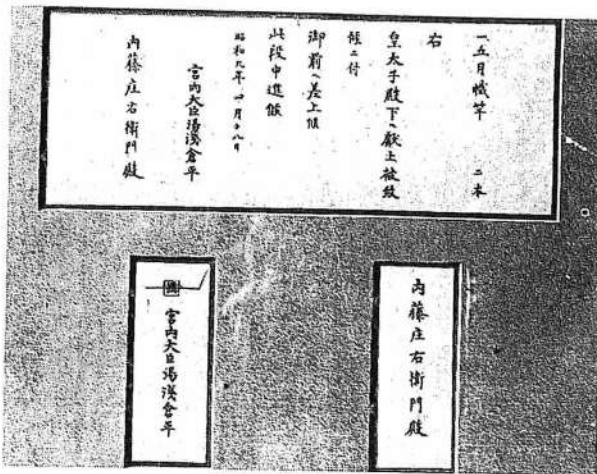 一五月幟竿 二本
右
皇太子殿下ヘ献上被致
候ニ付
御前ヘ差上候
此段申進候
昭和九年 四月十八日
宮内大臣湯浅倉平
内藤庄右衛門殿
内藤庄右衛門殿
宮内大臣湯浅倉平